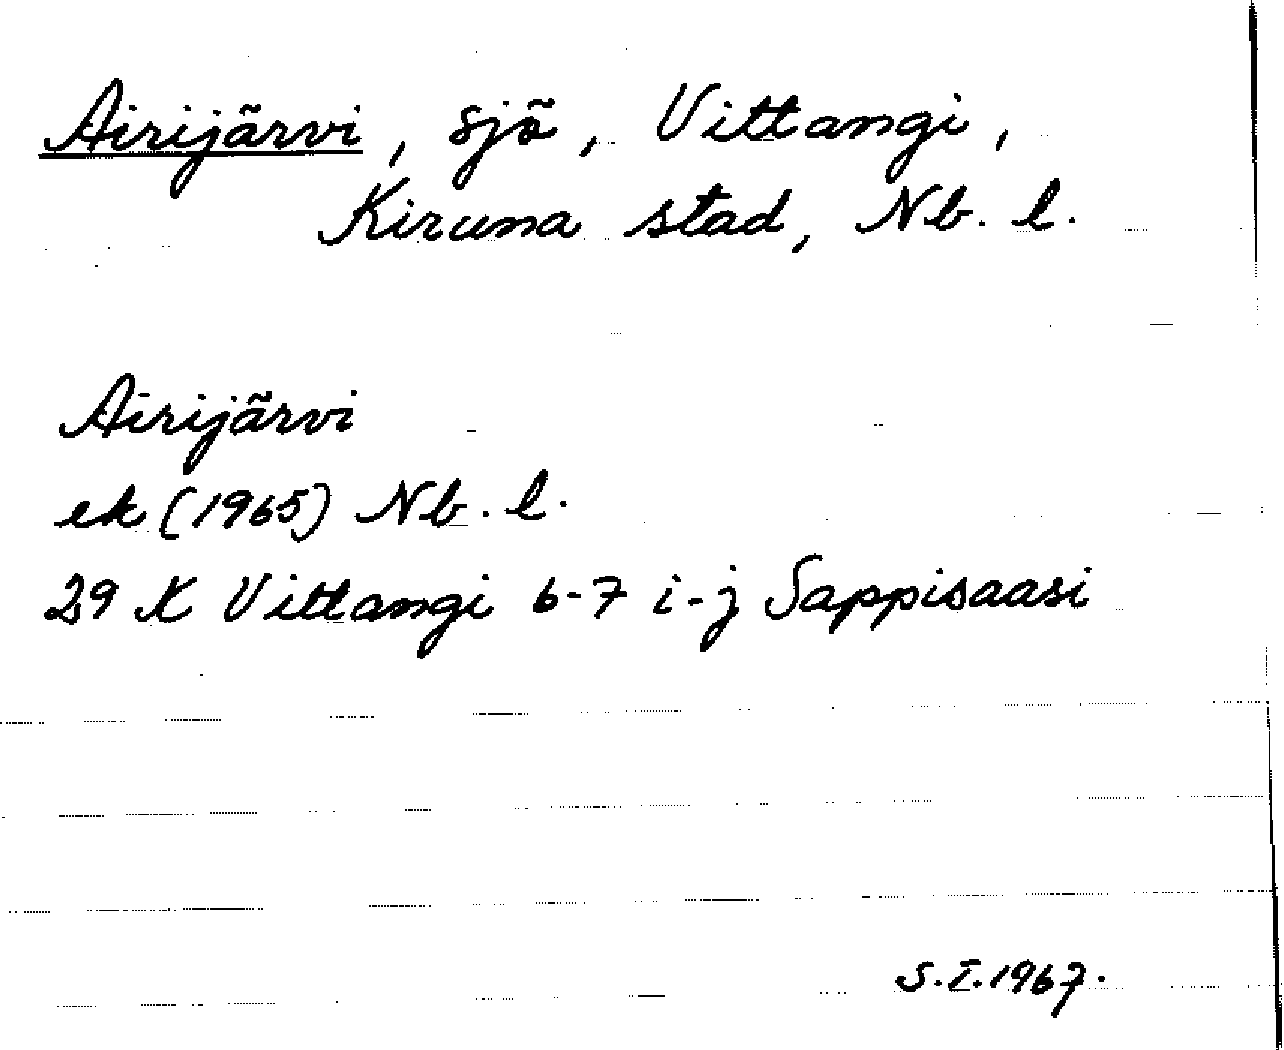 Airijärvi, sjö, Vittangi,
Kiruna stad, Nb. l.
Airijärvi
ek (1965) Nb. l.
29 K Vittangi 6-7 i-j Sappisaasi
S.I.1967.